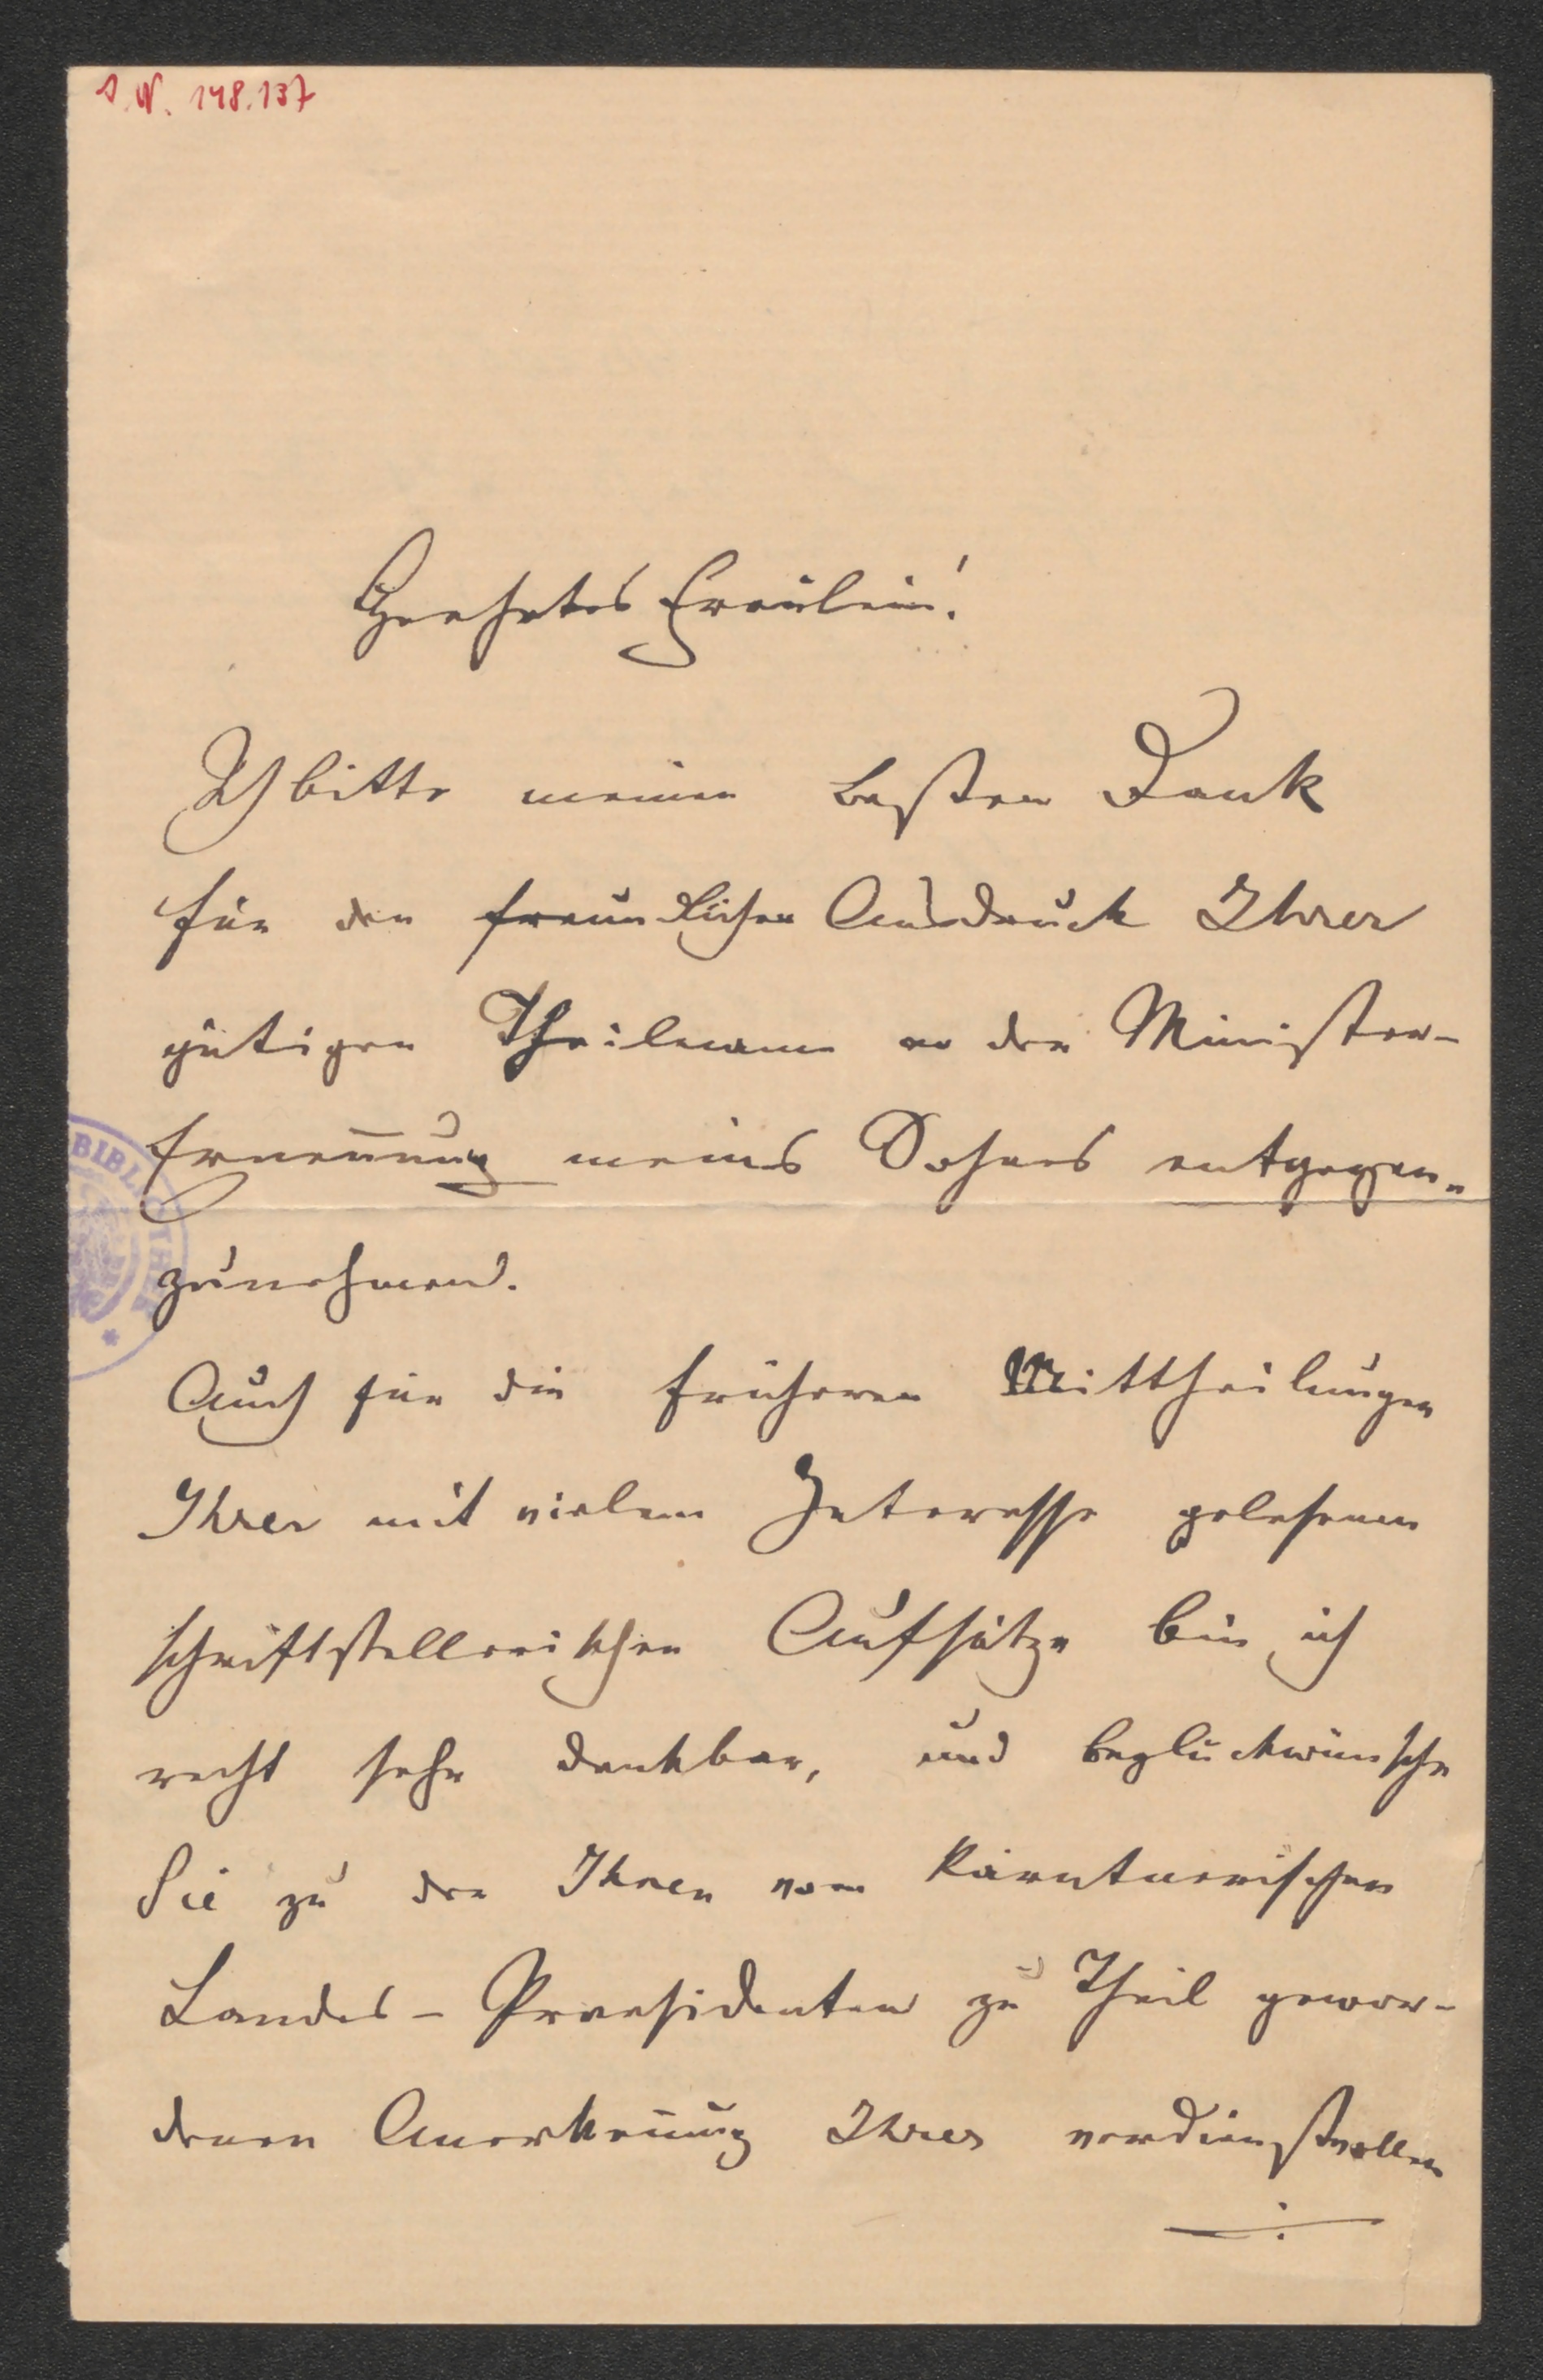 I.N. 148.137
Geehrtes Fräulein!
Ich bitte meinen besten Dank
für den freundlichen Ausdruck Ihrer
gütigen Theilname an der Minister-
Ernennung meines Sohnes entgegen-
zunehmen.
Auch für die früheren Mittheilungen
Ihrer mit vielem Interesse gelesenen
schriftstellerischen Aufsätze bin ich
recht sehr dankbar, und beglückwünsche
Sie zu der Ihnen vom Kärntnerischen
Landes-Praesidenten zu Theil gewor-
denen Anerkennung Ihrer verdienstvollen
BIBLIOTHEK